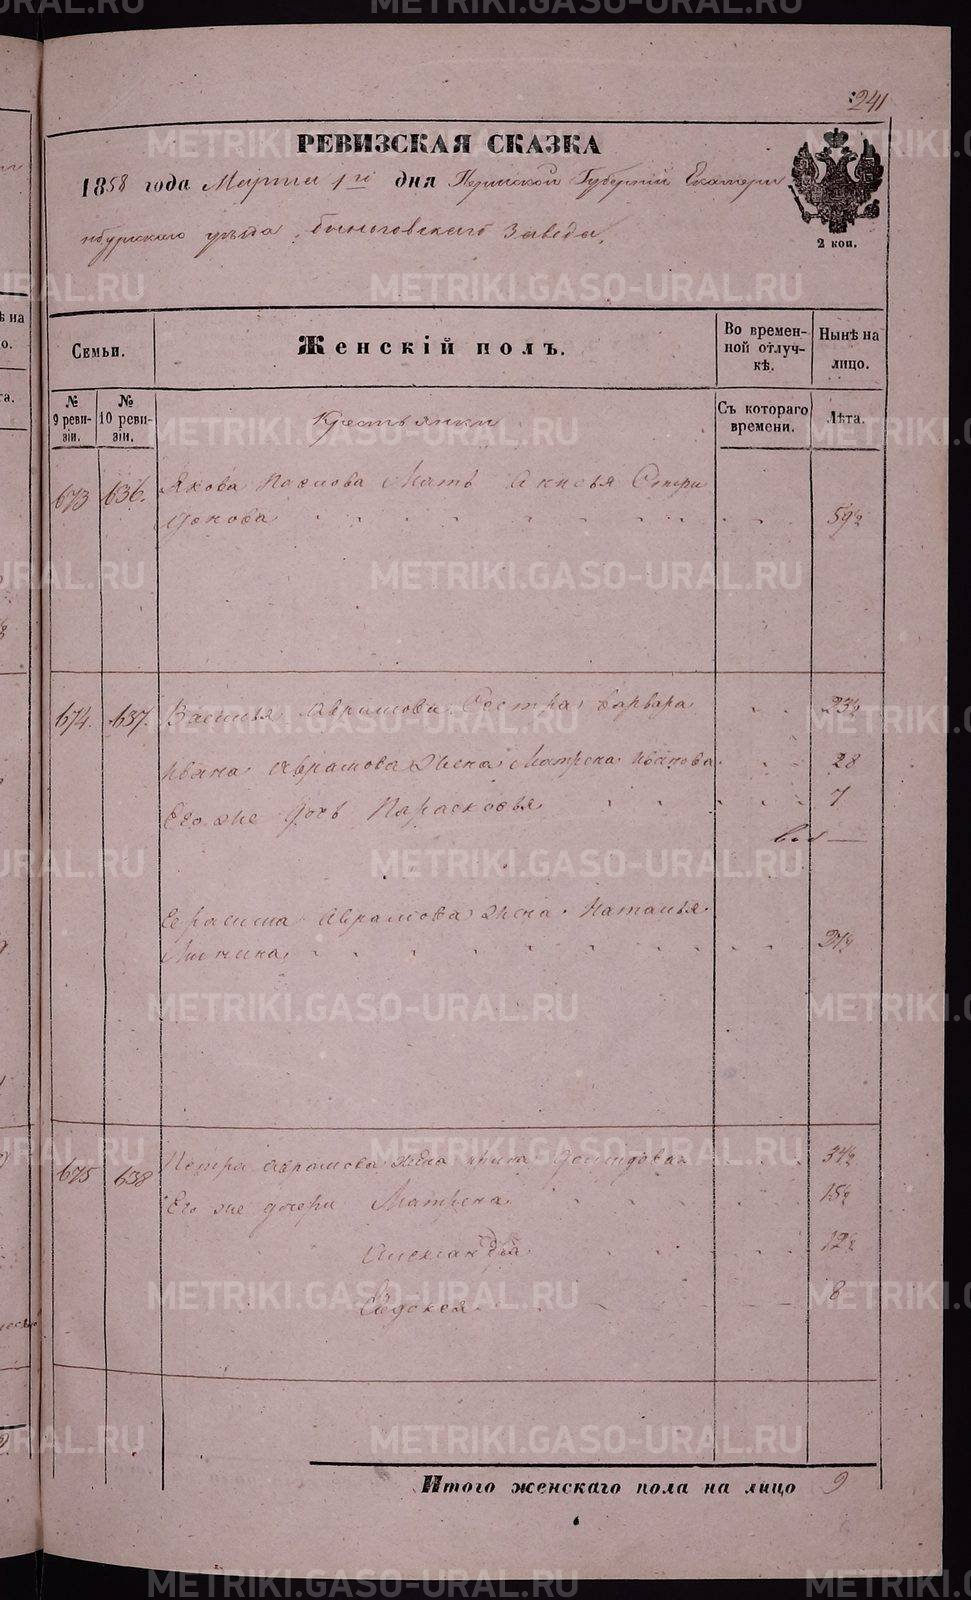 241
РЕВИЗСКАЯ СКАЗКА
1858 года Марта 1го дня Пермской Губерніи Екатери
нбурскаго уѣзда Быньговскаго Завода,
2 коп.
Семьи.
Женскій полъ.
Во времен-
ной отлуч-
кѣ.
Нынѣ на
лицо.
№
9 реви-
зіи.
№
10 реви-
зіи.
Крестьянки
Съ котораго
времени.
Лѣта.
673 636. Якова Мать Спири
донова 59½
674. 637. Василья Аврамова Сестра Варвара 23½
Ивана Аврамова Жена Матрена Иванова 28
Его же дочь Парасковья 7
Герасима Аврамова Жена Наталья
675 638 Петра Аврамова жена Ирина 34½
Его же дочери Матрена 15½
Александра 12½
Евдокея 8
Итого женскаго пола на лицо 9
METRIKI.GASO-URAL.RU